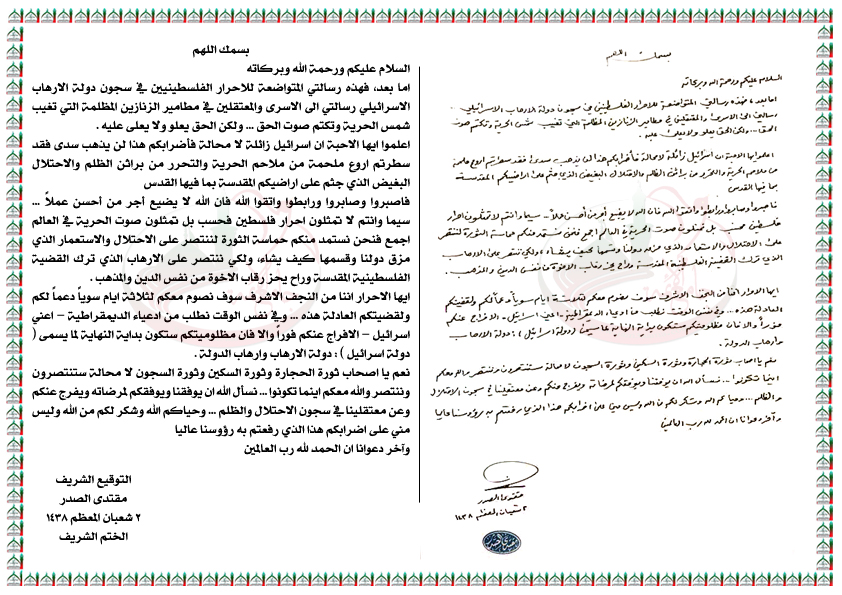 بسمك اللهم
السلام عليكم ورحمة الله وبركاته
اما بعد، فهذه رسالتي المتواضعة للاحرار الفلسطينيين في سجون دولة الارهاب الاسرائيلي ..
رسالتي الى الاسرى والمعتقلين في مطامير الزنازين المظلمة التي تغيب شمس الحرية وتكتم صوت
الحق ... ولكن الحق يعلو ولا يعلى عليه .
اعلموا ايها الاحبة ان اسرائيل زائلة لا محالة فأضرابكم هذا لن يذهب سدى فقد سطرتم اروع ملحمة
من ملاحم الحرية والتحرر من براثن الظلم والاحتلال البغيض الذي جثم على اراضيكم المقدسة
بما فيها القدس
فاصبروا وصابروا ورابطوا واتقوا الله فان الله لا يضيع أجر من أحسن عملاً ... سيما وانتم لا تمثلون احرار
فلسطين فحسب بل تمثلون صوت الحرية في العالم اجمع فنحن نستمد منكم حماسة الثورة لننتصر
على الاحتلال والاستعمار الذي مزق دولنا وقسمها كيف يشاء، ولكي ننتصر على الارهاب
الذي ترك القضية الفلسطينية المقدسة وراح يحز رقاب الاخوة من نفس الدين والمذهب .
ايها الاحرار اننا من النجف الاشرف سوف نصوم معكم لثلاثة ايام سوياً دعماً لكم ولقضيتكم
العادلة هذه ... وفي نفس الوقت نطلب من ادعياء الديمقراطية - اعني اسرائيل - الافراج عنكم
فوراً والا فان مظلوميتكم ستكون بداية النهاية لما يسمى ( دولة اسرائيل ) : دولة الارهاب
وارهاب الدولة .
نعم يا اصحاب ثورة الحجارة وثورة السكين وثورة السجون لا محالة ستنتصرون وننتصر والله معكم
اينما تكونوا ... نسأل الله ان يوفقنا ويوفقكم لمرضاته ويفرج عنكم وعن معتقلينا في سجون الاحتلال
والظلم ... وحياكم الله وشكر لكم من الله وليس مني على اضرابكم هذا الذي رفعتم به رؤوسنا عاليا
وآخر دعوانا ان الحمد لله رب العالمين
مقتدى الصدر
٢ شعبان المعظم ١٤٣٨
بسمك اللهم
السلام عليكم ورحمة الله وبركاته
اما بعد، فهذه رسالتي المتواضعة للاحرار الفلسطينيين في سجون دولة الارهاب
الاسرائيلي رسالتي الى الاسرى والمعتقلين في مطامير الزنازين المظلمة التي تغيب
شمس الحرية وتكتم صوت الحق ... ولكن الحق يعلو ولا يعلى عليه .
اعلموا ايها الاحبة ان اسرائيل زائلة لا محالة فأضرابكم هذا لن يذهب سدى فقد
سطرتم اروع ملحمة من ملاحم الحرية والتحرر من براثن الظلم والاحتلال
البغيض الذي جثم على اراضيكم المقدسة بما فيها القدس
فاصبروا وصابروا ورابطوا واتقوا الله فان الله لا يضيع أجر من أحسن عملاً ...
سيما وانتم لا تمثلون احرار فلسطين فحسب بل تمثلون صوت الحرية في العالم
اجمع فنحن نستمد منكم حماسة الثورة لننتصر على الاحتلال والاستعمار الذي
مزق دولنا وقسمها كيف يشاء، ولكي ننتصر على الارهاب الذي ترك القضية
الفلسطينية المقدسة وراح يحز رقاب الاخوة من نفس الدين والمذهب .
ايها الاحرار اننا من النجف الاشرف سوف نصوم معكم لثلاثة ايام سوياً دعماً لكم
ولقضيتكم العادلة هذه ... وفي نفس الوقت نطلب من ادعياء الديمقراطية – اعني
اسرائيل – الافراج عنكم فوراً والا فان مظلوميتكم ستكون بداية النهاية لما يسمى (
دولة اسرائيل ) : دولة الارهاب وارهاب الدولة .
نعم يا اصحاب ثورة الحجارة وثورة السكين وثورة السجون لا محالة ستنتصرون
وننتصر والله معكم اينما تكونوا... نسأل الله ان يوفقنا ويوفقكم لمرضاته ويفرج عنكم
وعن معتقلينا في سجون الاحتلال والظلم ... وحياكم الله وشكر لكم من الله وليس
مني على اضرابكم هذا الذي رفعتم به رؤوسنا عاليا
وآخر دعوانا ان الحمد لله رب العالمين
التوقيع الشريف
مقتدى الصدر
٢ شعبان المعظم ١٤٣٨
الختم الشريف